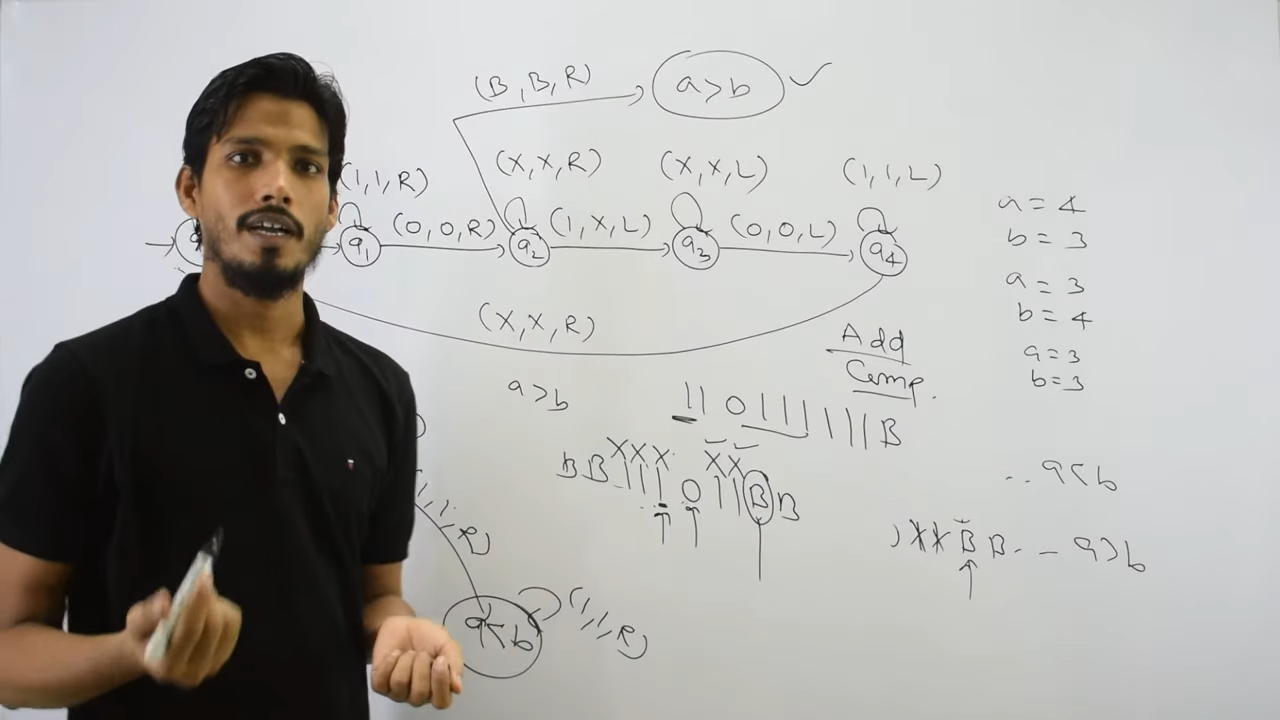 (B, B, R)
a>b ✓
(1, 1, R)
(X, X, R)
(X, X, L)
(1, 1, L)
q1
(0, 0, R)
q2
(1, X, L)
q3
(0, 0, L)
q4
(X, X, R)
a = 4
b = 3
a = 3
b = 4
a = 3
b = 3
Add
Comp.
a>b
1101111111B
XXX XX
BB111011BB
.. a<b
)XXBB.. – a>b
1, 1, R)
a<b
(1, 1, R)